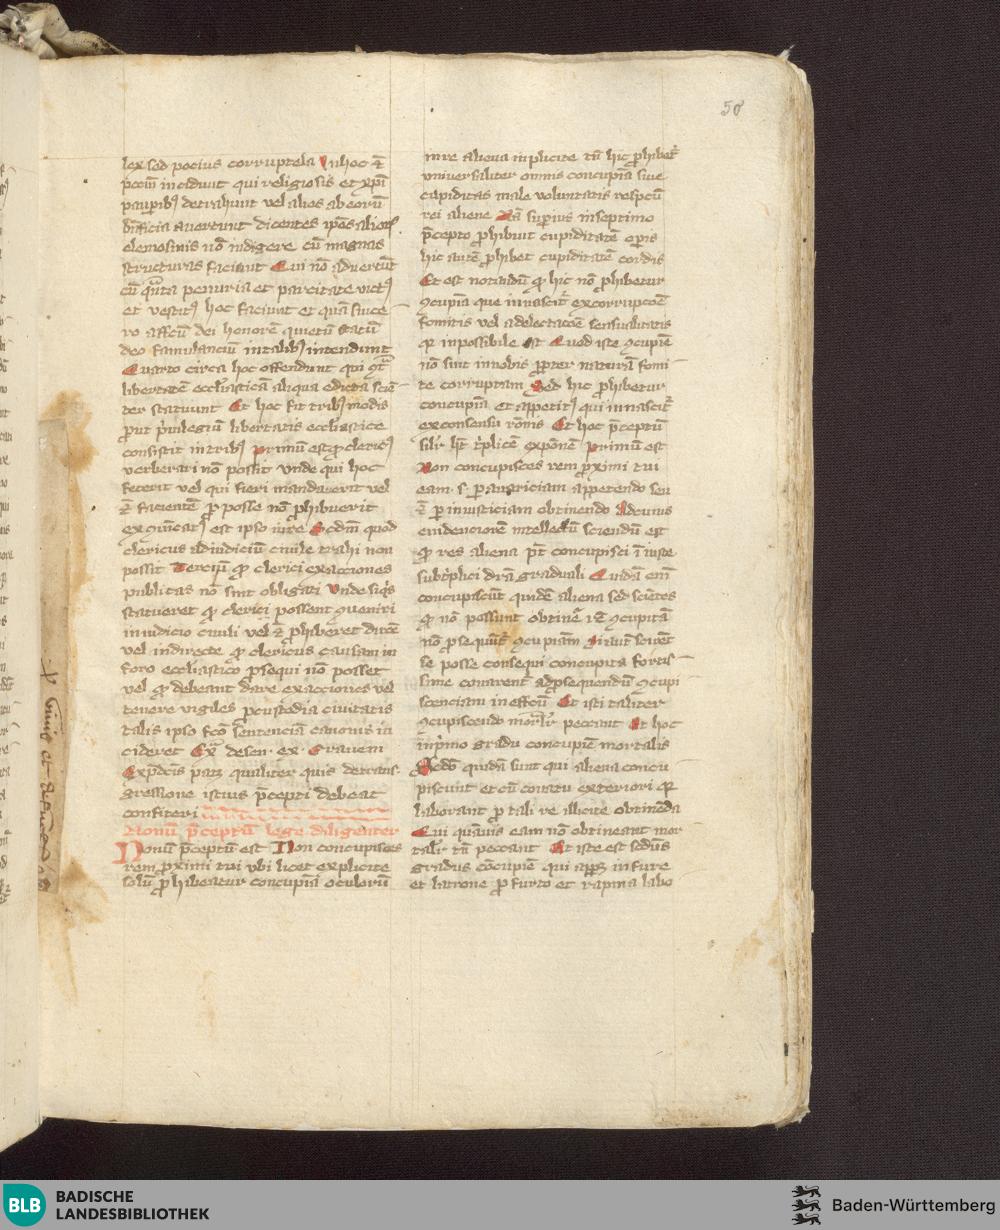 50
lex sed pocius corruptela In hoc etiam
pctm incidunt qui religiosis et xpi
paupibus detrahunt vel alios ab eorum
bnficia avertunt dicentes ipos
elemosinis no indigere cu magnas
structuras faciant Qui no advertunt
cu qnta penuria et parcitate victus
et vestitus hoc faciunt et qua since
ro affcu dei honore quietu statu
deo famulanciu in talibus intendunt
Quarto circa hoc offendunt qui
libertate ecclesiastica aliqua edicta
ter statuunt Et hoc fit tribus modis
put privilegiu libertatis ecclesiastice
consistit in tribus Primu est q clericus
verberari no possit unde qui hoc
fecerit vel qui fieri mandaverit vel
faciente p posse no phibuerit
excoicatus est ipso iure Scdm quod
clericus ad iudiciu civile trahi non
possit Terciu q clerici exacciones
publicas no sint obligati Unde siqs
statueret q clerici possent queniri
in iudicio civili vel phiberet
vel indirecte q clericus causam in
foro ecclesiastico psequi no posset
vel q debeant dare exacciones vel
tenere vigiles p custodia civitatis
talis ipso fco sentencia canonis in
cideret Ex de sen ex Gravem
Expeditis patz qualiter quis de trans
gressione istius pcepti debeat
confiteri
Nonu pceptu lege diligenter
Nonu pceptu est Non concupisces
rem pximi tui ubi licet explicite
solu phibeatur concupia oculoru
in re aliena implicite tn hic phibet
universaliter omnis concupia sive
cupiditas male voluntatis respectu
rei aliene Na supius in septimo
pcepto phibuit cupiditate opis
hic aute phibet cupiditate cordis
Et est notandu q hic no phibetur
gcupia que innascit ex corrupcoe
fomitis vel a delectacoe sensualitatis
q inpossibile est Quod iste gcupie
no sint in nobis ppter natura fomi
te corruptam Sed hic phibetur
concupia et appetitus qui innascit
ex consensu ronis Et hoc pceptu
silr het tplice expone Primu est
Non concupisces rem pximi tui
eam s p avariciam appetendo seu
p iniusticiam obtinendo Ad cuius
evidenciore intellectu sciendu est
q res aliena pt concupisci iniuste
sub tplici dra graduali Quida em
concupiscut quide aliena sed scietes
q no possunt obtine gcupita
no psequunt gcupiam Si aut scirent
se posse consequi concupita fortis
sime conarent ad psequendu gcupi
scenciam in effcu Et isti taliter
gcupiscendo mortalr peccant Et hoc
in primo gradu concupie mortalis
Scdo quida sunt qui aliena concu
piscunt et cu conatu exteriori q
laborant p tali re illicite obtineda
Qui quamvis eam no obtineant mor
talr tn peccant Et iste est secundus
gradus concupie qui apps in fure
et latrone p furto et rapina labo
BLB
BADISCHE
LANDESBIBLIOTHEK
Baden-Württemberg